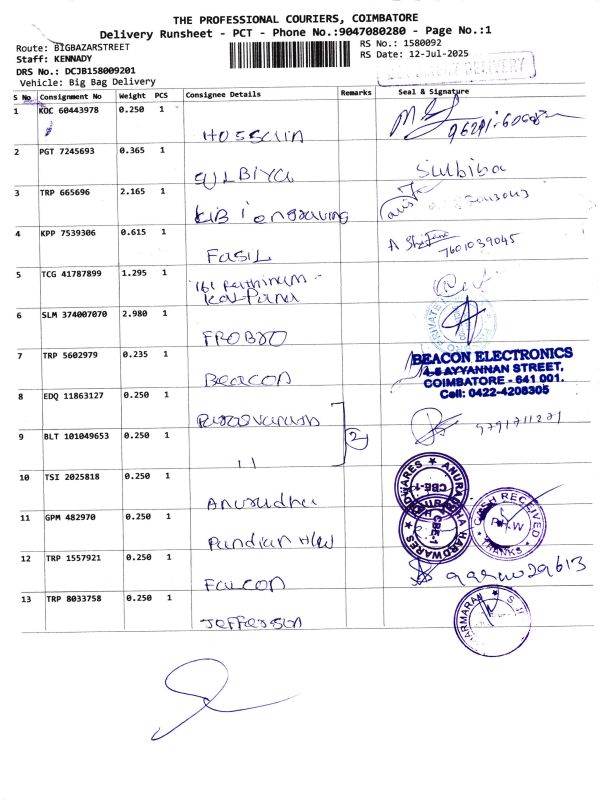 THE PROFESSIONAL COURIERS, COIMBATORE
Delivery Runsheet - PCT - Phone No.:9047080280 - Page No.:1
Route: BIGBAZARSTREET
RS No.: 1580092
Staff: KENNADY
RS Date: 12-Jul-2025
DRS No.: DCJB158009201
Vehicle: Big Bag Delivery
S No Consignment No Weight PCS Consignee Details Remarks Seal & Signature
1 KOC 60443978 0.250 1 HOSSAIN
2 PGT 7245693 0.365 1 SULBIYA Sulbiba
3 TRP 665696 2.165 1 engraving
4 KPP 7539306 0.615 1 FASIL 7601039045
5 TCG 41787899 1.295 1 161 Rathinam - Kalpana
6 SLM 374007070 2.980 1 FROBRO
7 TRP 5602979 0.235 1 BEACON
BEACON ELECTRONICS
4-5 AYYANNAN STREET,
COIMBATORE - 641 001.
Cell: 0422-4208305
8 EDQ 11863127 0.250 1
9 BLT 101049653 0.250 1 11 2
10 TSI 2025818 0.250 1 Anuradha
ANURADHA HARDWARES CBE-1
11 GPM 482970 0.250 1 Pandian H/W
CASH RECEIVED P.H.W THANKS
12 TRP 1557921 0.250 1 FALCON
13 TRP 8033758 0.250 1 Jefferson